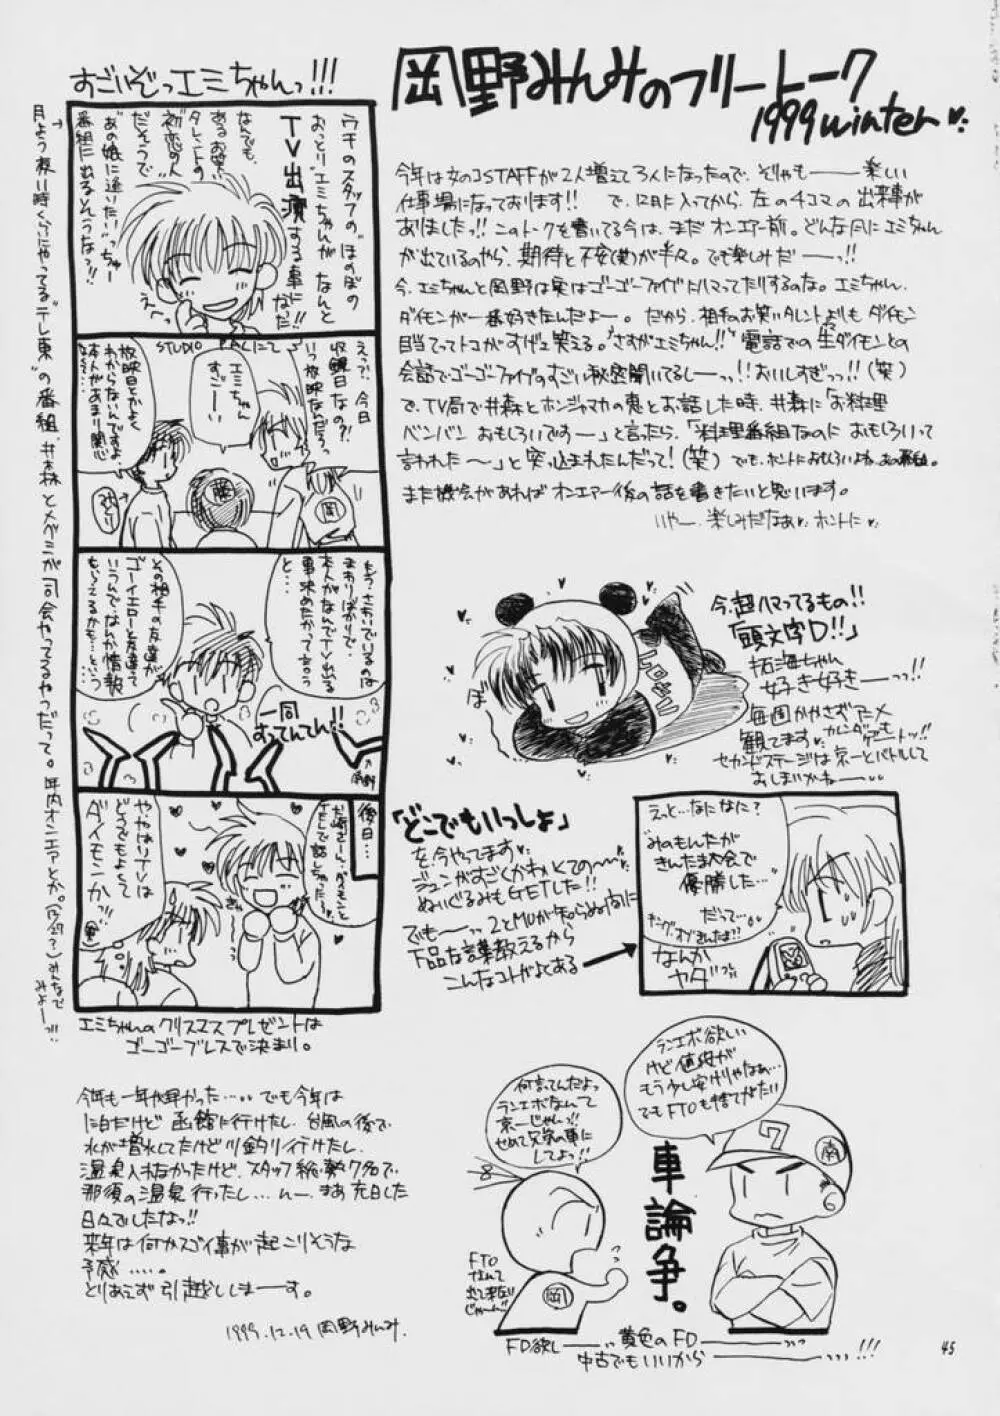 岡野みんみのフリートーク
1999 winter
今年は女のコSTAFFが2人増えて3人になったので、そりゃもーー楽しい
仕事場になっております!! で、12月に入ってから、左の4コマの出来事が
ありましたっ!! このトークを書いてる今は、まだオンエアー前。どんな風にエミちゃん
が出ているのやら、期待と不安(笑)が半々。でも楽しみだーーっ!!
今、エミちゃんと岡野は実はゴーゴーファイブにハマってたりするのな。エミちゃん、
ダイモンが一番好きなんだよー。だから、相手のお笑いタレントよりもダイモン
目当てってトコがすげぇ笑える。"さすがエミちゃん!!" 電話での生ダイモンとの
会話でゴーゴーファイブのすごい秘密聞いてるしーっ!! おいしすぎっ!! (笑)
で、TV局で井森とホンジャマカの恵とお話した時、井森に「お料理
バンバン おもしろいですー」と言ったら、「料理番組なのに おもしろいって
言われた〜」と突っ込まれたんだって! (笑) でも、ホントにおもしろいよね、あの番組。
また機会があればオンエアー後の話を書きたいと思います。
いやー、楽しみだなぁ ホントに
すごいぞっエミちゃんっ!!!
ウチのスタッフの"ほのぼの
おっとりエミちゃんが なんと
TV出演する事に
なった!!
なんでも、
あるお笑い
タレントの
初恋の人
だそうで
"あの娘に逢いたい"っちゅー
番組に出るとゆうなっ!!
えー
STUDIO PALにて
えっで、今日
収録日なの?!
いつ放映なんだろっ
エミちゃん
すごーーい
放映日とかよく
わからないんですよ、
本人があまり関心
なくて…
岡
もう、さわいでいるのは
まわりばかりで、
本人がなんでTV出る
事決めたかって言う
と…
その相手の友達が
ゴーイエローと友達って
いうんで、なんか情報
もらえるかも…という
一同
むってんてん!!
後日…
TELで話しちゃった…
やっぱりTVは
どうでもよくて
ダイモンかっ!!
月よう夜11時くらいにやってる"テレ東"の番組、井森とメグミが司会やってるやつだって。年内オンエアとか。みんなで
みよーっ!!
エミちゃんのクリスマスプレゼントは
ゴーゴーブレスで決まり。
今、超ハマってるもの!!
「頭文字D!!」
拓海ちゃん
好き好きーーっ!!
毎週かかさずアニメ
観てます カレンダーもゲーートッ!!
セカンドステージは京一とバトルして
おしまいかねーー
「どこでもいっしょ」
を今やってます
ジュンがすごくかわいくてのー〜
ぬいぐるみもGETした!!
でもーーっっ 2とMUが知らぬ内に
下品な言葉教えるから
こんなコトがよくある
えっと…なになに?
"みのもんたが
きんたま大会で
優勝した…"
だって…
キングオブきんたま??
なんか
ヤダ
今年も一年が早かった…‥ でも今年は
1泊だけど 函館に行けたし、台風の後で
水が増水してたけど川釣り行けたし、
温泉入れなかったけど、スタッフ総勢7名で
那須の温泉行ったし…んー、まあ充日した
日々でしたなっ!!
来年は何かスゴイ事が起こりそうな
予感…‥。
とりあえず引越ししまーーす。
1999.12.19 岡野みんみ.
ランエボ欲しい
けど値段が
もう少し安けりゃなぁ…
でもFTOも捨てがたい
何言ってんだよっ
ランエボなんて
京一じゃんっ!!
せめて兄弟の車に
してよっ!!
車論争。
7
南
FTO
なんて
じゃーん
岡
FD欲しーーっ 黄色のFDーーーーっっ
中古でもいいからーーーーーーっっっ!!!
45